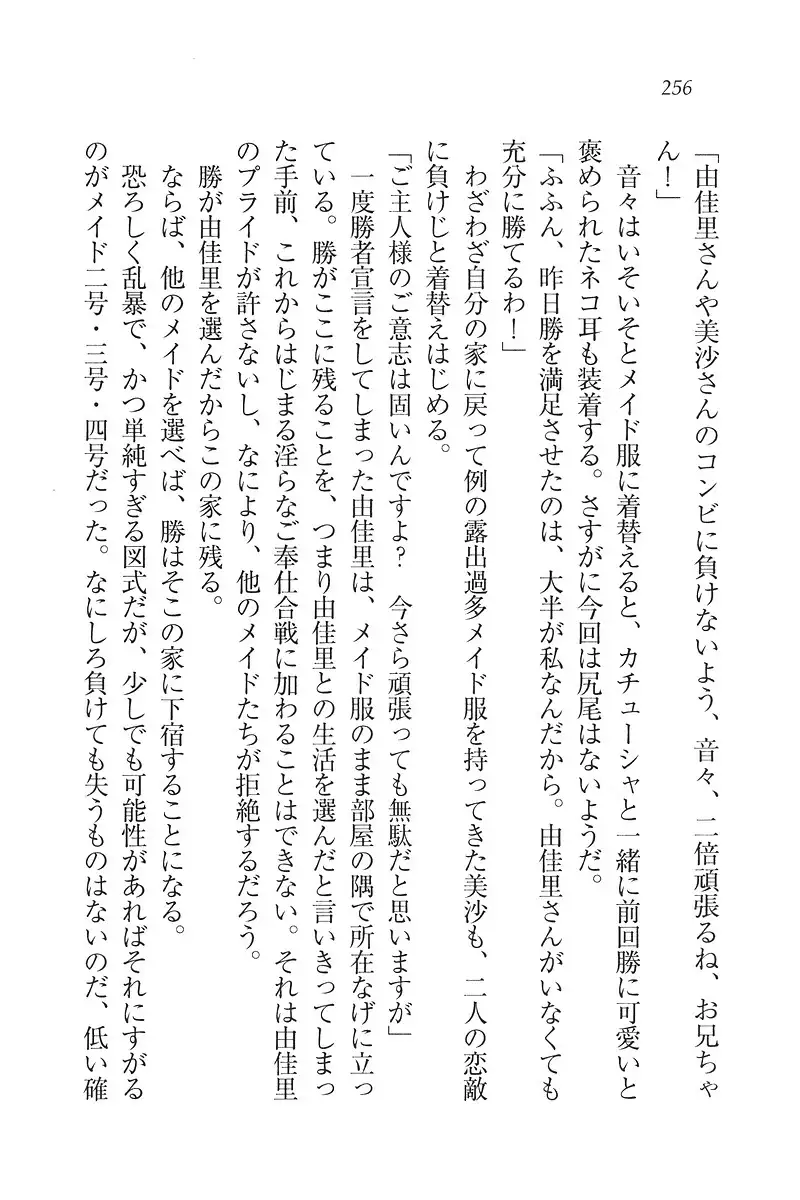 256
「由佳里さんや美沙さんのコンビに負けないよう、音々、二倍頑張るね、お兄ちゃ
ん！」
　音々はいそいそとメイド服に着替えると、カチューシャと一緒に前回勝に可愛いと
褒められたネコ耳も装着する。さすがに今回は尻尾はないようだ。
「ふふん、昨日勝を満足させたのは、大半が私なんだから。由佳里さんがいなくても
充分に勝てるわ！」
　わざわざ自分の家に戻って例の露出過多メイド服を持ってきた美沙も、二人の恋敵
に負けじと着替えはじめる。
「ご主人様のご意志は固いんですよ？　今さら頑張っても無駄だと思いますが」
　一度勝者宣言をしてしまった由佳里は、メイド服のまま部屋の隅で所在なげに立っ
ている。勝がここに残ることを、つまり由佳里との生活を選んだと言いきってしまっ
た手前、これからはじまる淫らなご奉仕合戦に加わることはできない。それは由佳里
のプライドが許さないし、なにより、他のメイドたちが拒絶するだろう。
　勝が由佳里を選んだからこの家に残る。
　ならば、他のメイドを選べば、勝はそこの家に下宿することになる。
　恐ろしく乱暴で、かつ単純すぎる図式だが、少しでも可能性があればそれにすがる
のがメイド二号・三号・四号だった。なにしろ負けても失うものはないのだ、低い確